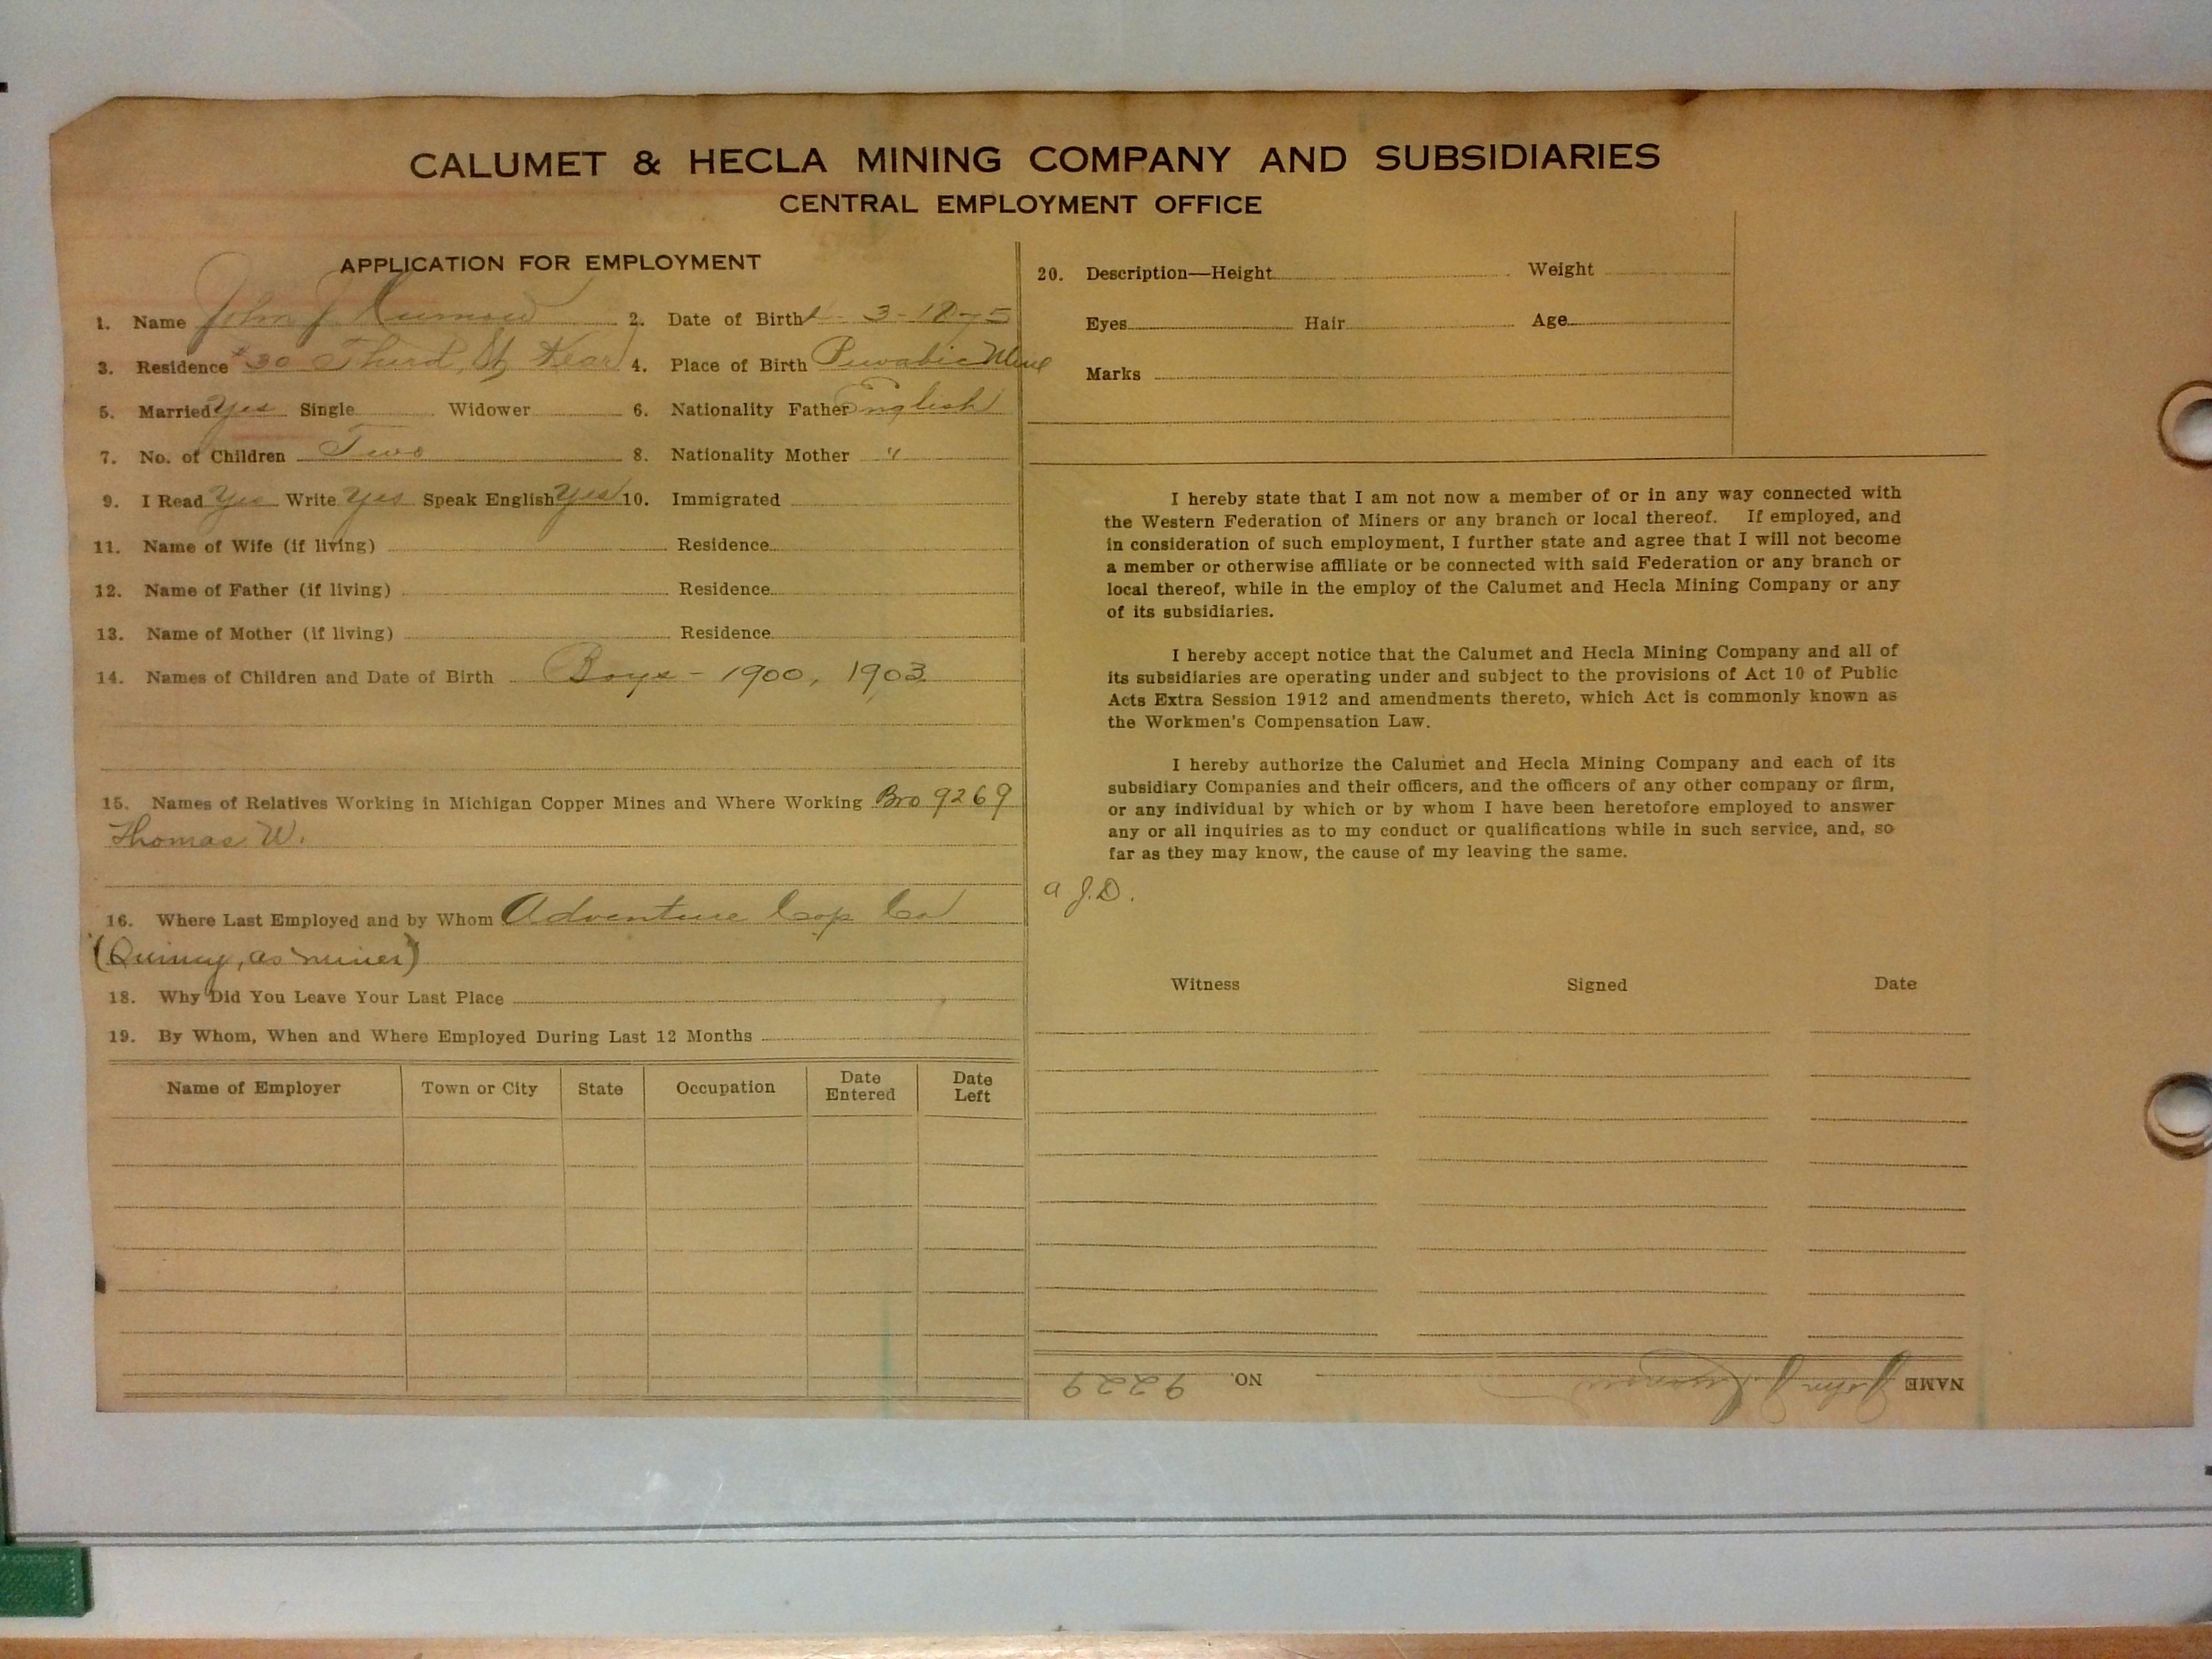 CALUMET & HECLA MINING COMPANY AND SUBSIDIARIES
CENTRAL EMPLOYMENT OFFICE
APPLICATION FOR EMPLOYMENT
1. Name John J. 2. Date of Birth 3-1875
3. Residence #30 Third St Kear 4. Place of Birth Pewabic Mine
5. Married Yes Single Widower 6. Nationality Father English
7. No. of Children Two 8. Nationality Mother "
9. I Read Yes Write Yes Speak English Yes 10. Immigrated
11. Name of Wife (if living) Residence
12. Name of Father (if living) Residence
13. Name of Mother (if living) Residence
14. Names of Children and Date of Birth Boys - 1900, 1903
15. Names of Relatives Working in Michigan Copper Mines and Where Working Bro 9269
Thomas W.
16. Where Last Employed and by Whom Adventure Cop Co
(Quincy, as miner)
18. Why Did You Leave Your Last Place
19. By Whom, When and Where Employed During Last 12 Months
Name of Employer Town or City State Occupation Date Entered Date Left
20. Description—Height Weight
Eyes Hair Age
Marks
I hereby state that I am not now a member of or in any way connected with
the Western Federation of Miners or any branch or local thereof. If employed, and
in consideration of such employment, I further state and agree that I will not become
a member or otherwise affiliate or be connected with said Federation or any branch or
local thereof, while in the employ of the Calumet and Hecla Mining Company or any
of its subsidiaries.
I hereby accept notice that the Calumet and Hecla Mining Company and all of
its subsidiaries are operating under and subject to the provisions of Act 10 of Public
Acts Extra Session 1912 and amendments thereto, which Act is commonly known as
the Workmen's Compensation Law.
I hereby authorize the Calumet and Hecla Mining Company and each of its
subsidiary Companies and their officers, and the officers of any other company or firm,
or any individual by which or by whom I have been heretofore employed to answer
any or all inquiries as to my conduct or qualifications while in such service, and, so
far as they may know, the cause of my leaving the same.
a J.D.
Witness Signed Date
NAME John J. NO. 9229